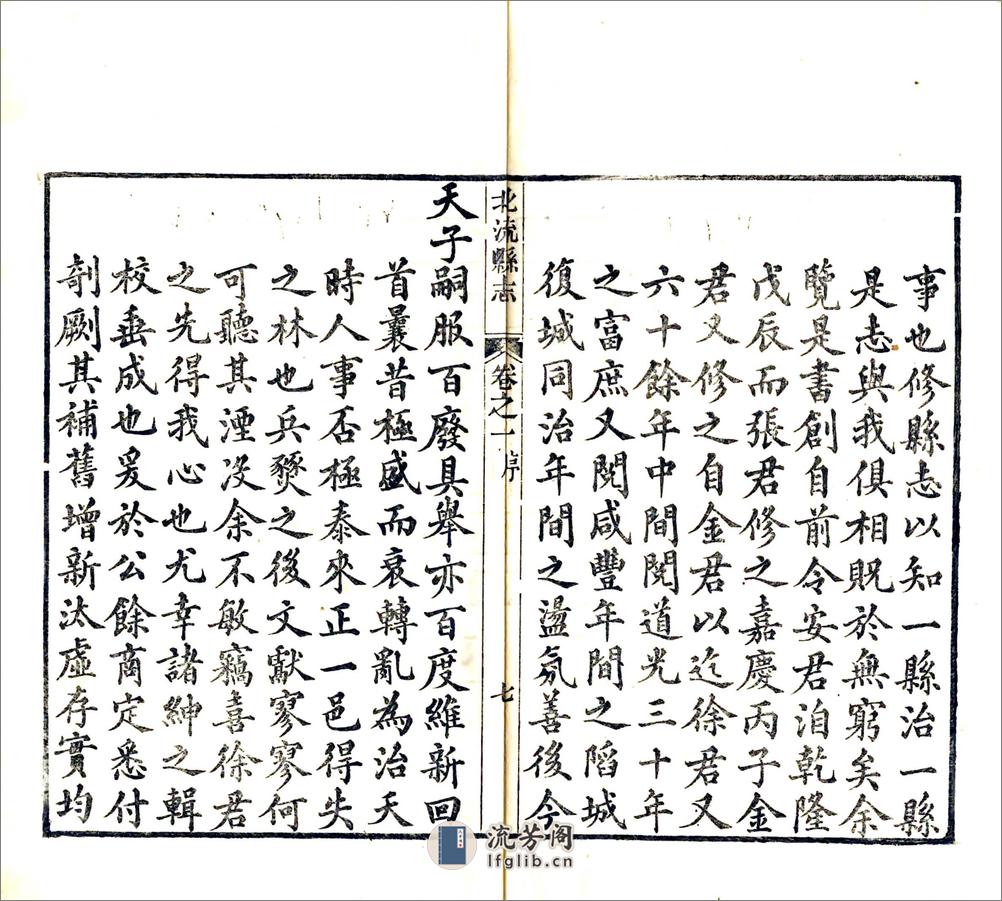 事也修縣志以知一縣治一縣
是志與我俱相貺於無窮矣余
覽是書創自前令安君洎乾隆
戊辰而張君修之嘉慶丙子金
君又修之自金君以迄徐君又
六十餘年中間閱道光三十年
之富庶又閱咸豐年間之陷城
復城同治年間之盪氛善後今
北流縣志
卷之一 序
七
天子嗣服百廢具舉亦百度維新回
首曩昔極盛而衰轉亂為治天
時人事否極泰來正一邑得失
之林也兵燹之後文獻寥寥何
可聽其湮沒余不敏竊喜徐君
之先得我心也尤幸諸紳之輯
校垂成也爰於公餘商定悉付
剞劂其補舊增新汰虛存實均
流芳阁
lfglib.cn